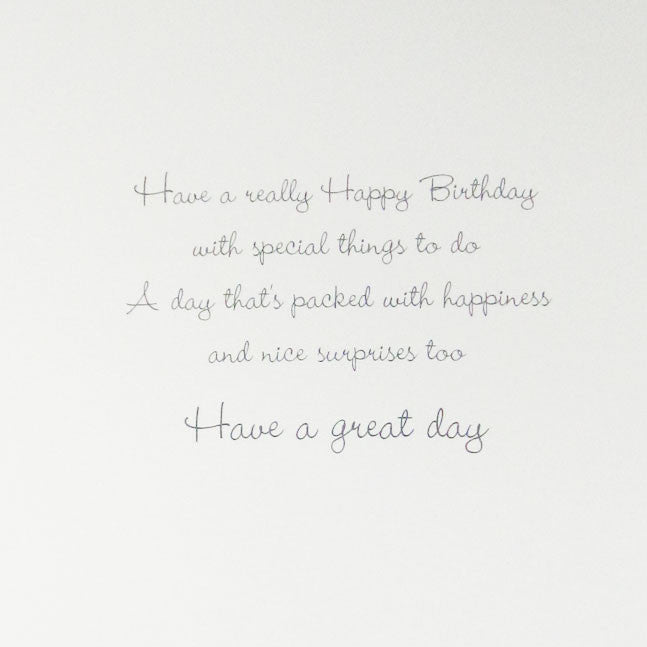 Have a really Happy Birthday
with special things to do
A day that's packed with happiness
and nice surprises too
Have a great day